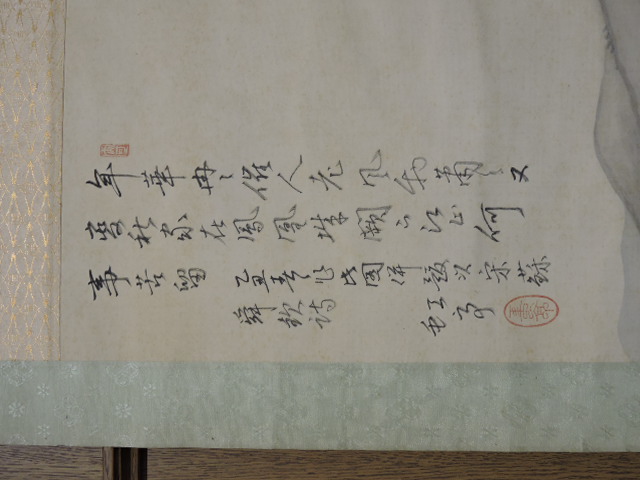 年華冉〻催人老風物蕭〻又
變秋家在鳳凰城闕下江山何
事苦留
乙丑春作此圖併題以宋蘇
舜欽詩
虹亭